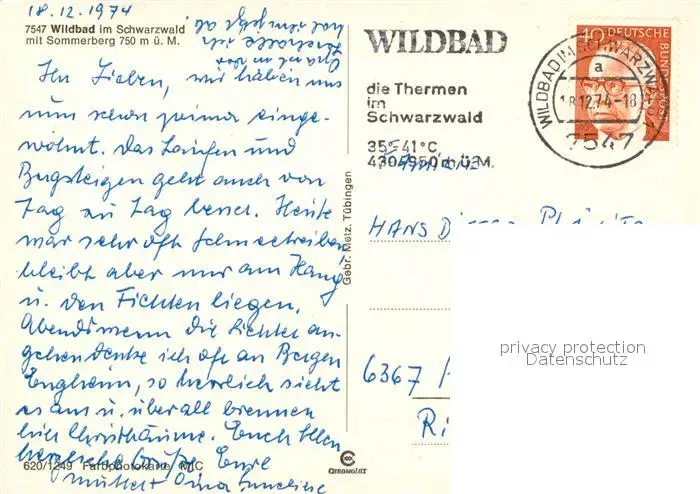 18.12.1974
7547 Wildbad im Schwarzwald
mit Sommerberg 750 m ü. M.
Ihr Lieben, wir haben uns
nun schon prima einge-
wöhnt. Das Laufen und
Bergsteigen geht auch von
Tag zu Tag besser. Heute
war sehr oft Schneetreiben
bleibt aber nur am Hang
u. den Fichten liegen.
Abends wenn die Lichter an-
gehen denke ich oft an Bergen
Enkheim, so herrlich sieht
es aus u. überall brennen
die Christbäume. Euch Allen
herzliche Grüße Eure
Mutter Oma
620/1249 Farbphotokarte MIC
Gebr. Metz, Tübingen
CHROMOLUX
WILDBAD
die Thermen
im
Schwarzwald
35°-41°C
430-950 m ü. M.
40 DEUTSCHE BUNDESPOST
WILDBAD IM SCHWARZWALD
a
18.12.74-18
7547
FAMILIE
HANS
6367
privacy protection
Datenschutz